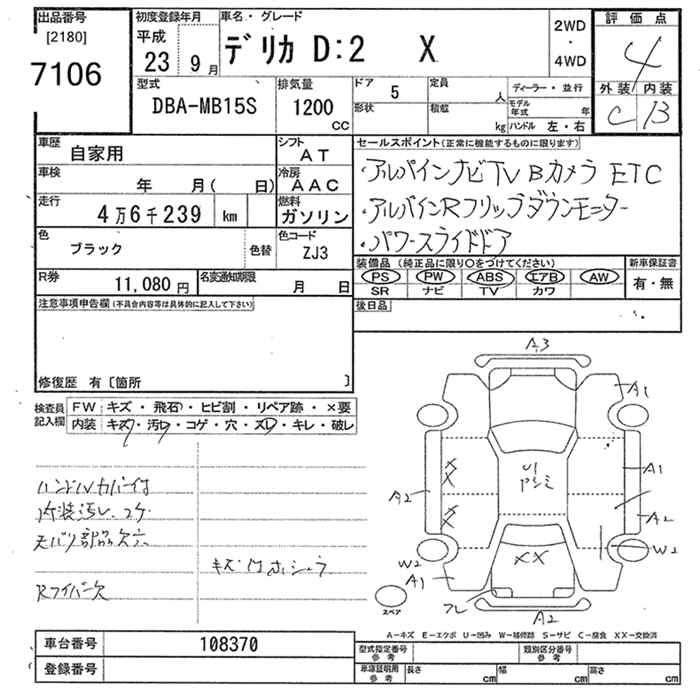 出品番号 初度登録年月 車名・グレード 2WD・4WD 評価点
[2180] 7106 平成 23 9月 デリカ D:2 X 4
外装 内装
C B
型式 排気量 ドア 定員 ディーラー・並行
DBA-MB15S 1200 CC 5 人
形状 積載 kg モデル年式 年
ハンドル 左・右
車歴 自家用 シフト AT
車検 年 月( 日) 冷房 AAC
走行 4万6千239 km 燃料 ガソリン
色 ブラック 色替 色コード ZJ3
R券 11,080円 名変通知期限 月 日
セールスポイント(正常に機能するものに限ります)
・アルパインナビTV Bカメラ ETC
・アルパインRフリップダウンモニター
・パワースライドドア
装備品(純正品に限り○をつけてください) 新車保証書
PS PW ABS エアB AW 有・無
SR ナビ TV カワ
後日品
注意事項申告欄(不具合内容等は具体的に記入して下さい)
修復歴 有〔箇所 〕
検査員記入欄 FW キズ・飛石・ヒビ割・リペア跡・×要
内装 キズ・汚レ・コゲ・穴・スレ・キレ・破レ
ハンドルカバー付
内装汚レ、コゲ
モバリ部品欠穴
Rワイパー欠
キズ
A3
A1
U1
A1
A2
A2
XX
W2
W2
A1
スペア
A2
A-キズ E-エクボ U-凹み W-補修跡 S-サビ C-腐食 XX-交換済
車台番号 108370
登録番号
型式指定番号 参考 類別区分番号 参考
車庫証明用 参考 長さ cm 幅 cm 高さ cm